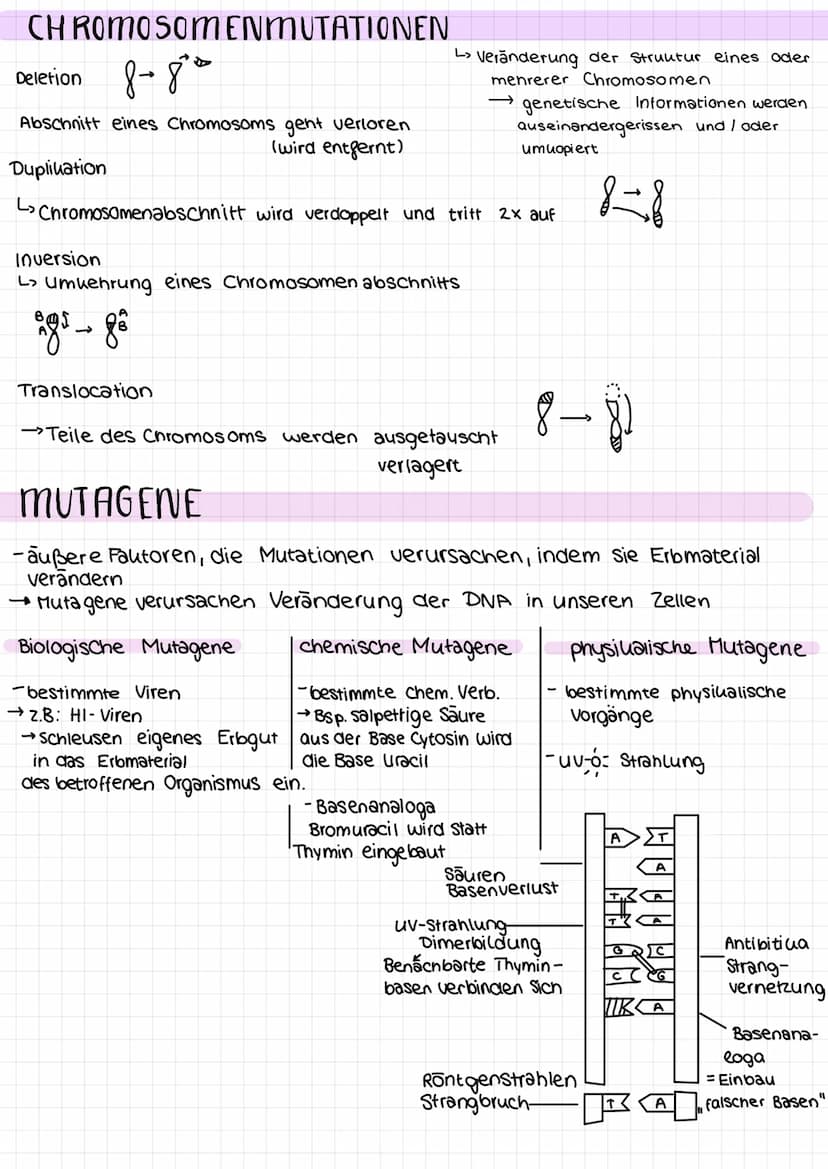 CHROMOSOMENMUTATIONEN
↳ Veränderung der Struktur eines oder
mehrerer Chromosomen
→ genetische Informationen werden
auseinandergerissen und / oder
umkopiert
Deletion
Abschnitt eines Chromosoms geht verloren
(wird entfernt)
Duplikation
↳ Chromosomenabschnitt wird verdoppelt und tritt 2x auf
Inversion
↳ Umkehrung eines Chromosomenabschnitts
B A
A B
Translocation
→ Teile des Chromosoms werden ausgetauscht
verlagert
MUTAGENE
- äußere Faktoren, die Mutationen verursachen, indem sie Erbmaterial
verändern
→ Mutagene verursachen Veränderung der DNA in unseren Zellen
Biologische Mutagene
- bestimmte Viren
→ z.B: HI-Viren
→ schleusen eigenes Erbgut
in das Erbmaterial
des betroffenen Organismus ein.
chemische Mutagene
- bestimmte chem. Verb.
→ Bsp. salpetrige Säure
aus der Base Cytosin wird
die Base Uracil
- Basenanaloga
Bromuracil wird statt
Thymin eingebaut
physikalische Mutagene
- bestimmte physikalische
Vorgänge
- UV- Strahlung
Säuren
Basenverlust
UV-Strahlung
Dimerbildung
Benachbarte Thymin-
basen verbinden sich
Röntgenstrahlen
Strangbruch
A T
A
T A
T A
G C
C G
A
T A
Antibitika
Strang-
vernetzung
Basenana-
loga
= Einbau
"falscher Basen"